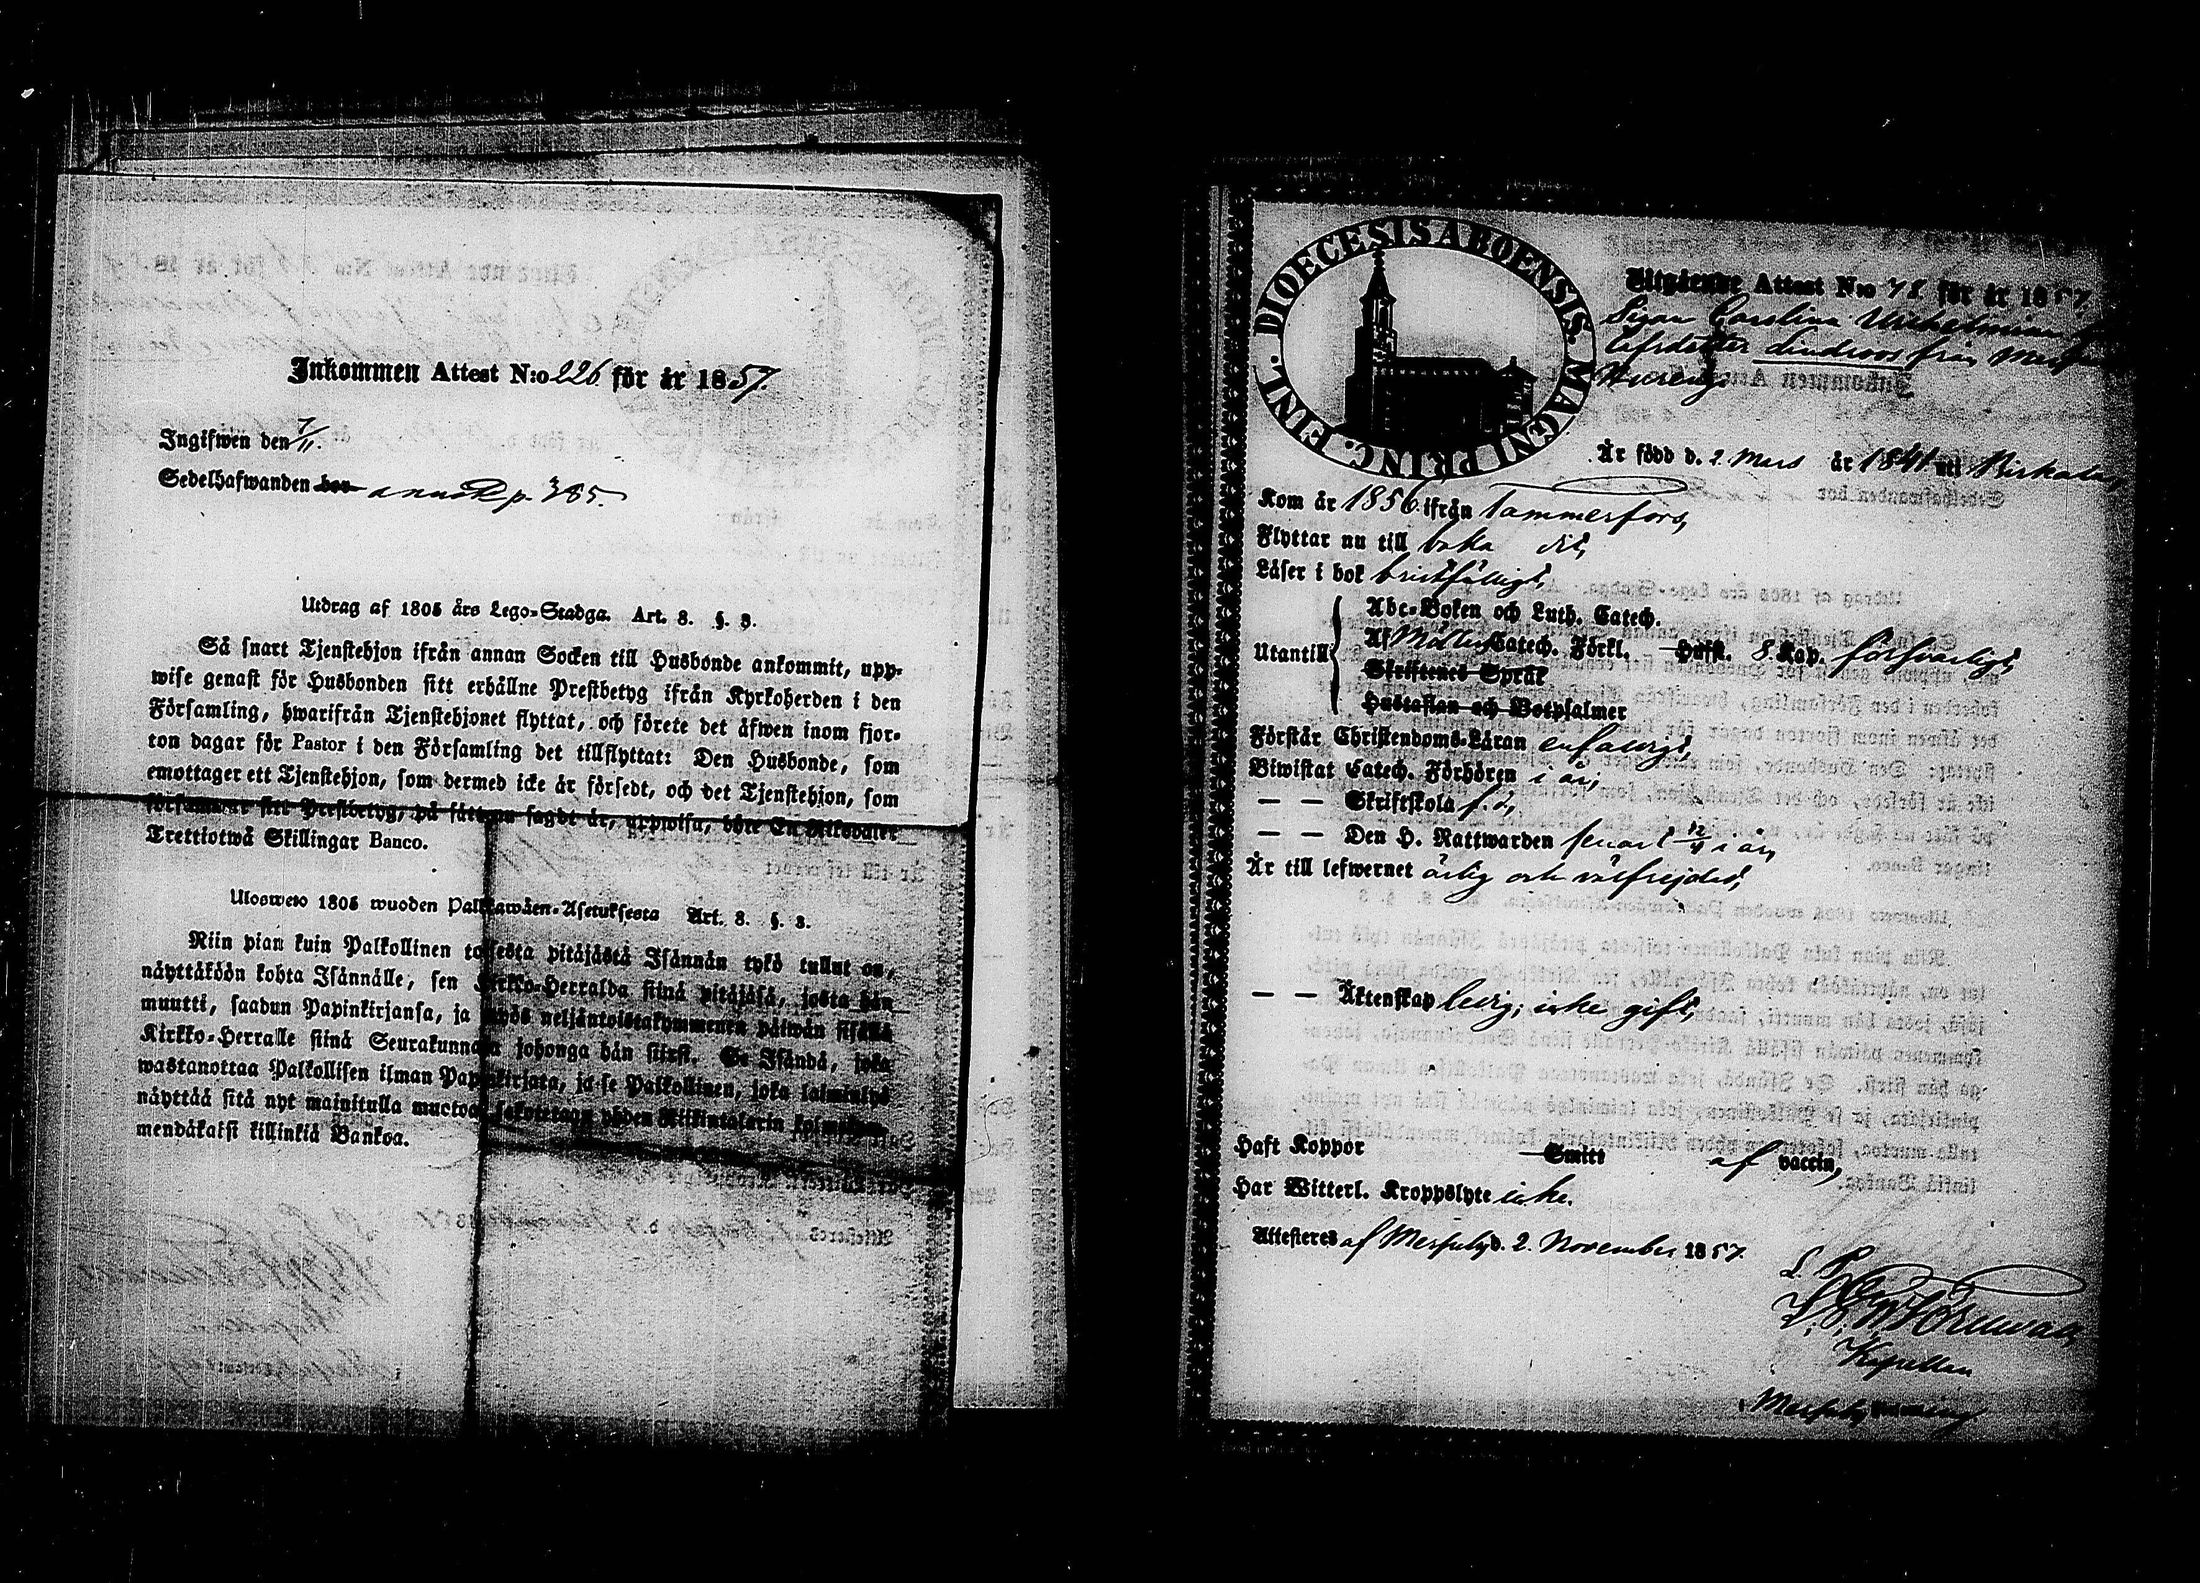 Inkommen Attest N:o 226 för år 1857.
Ingifwen den 7/11.
Sedelhafwanden bor annot p. 385.
Utdrag af 1805 års Lego-Stadga. Art. 8. §. 3.
Så snart Tjenstehjon ifrån annan Socken till Husbonde ankommit, upp-
wise genast för Husbonden sitt erhållne Prestbetyg ifrån Kyrkoherden i den
Församling, hwarifrån Tjenstehjonet flyttat, och förete det äfwen inom fjor-
ton dagar för Pastor i den Församling det tillflyttat: Den Husbonde, som
emottager ett Tjenstehjon, som dermed icke är försedt, och det Tjenstehjon, som
försummar sitt Prestbetyg, på sätt nu sagdt är, uppwisa, böte En Riksdaler
Trettiotwå Skillingar Banco.
Ulosweto 1805 wuoden Palkkawäen-Asetuksesta Art. 8. §. 3.
Niin pian kuin Palkollinen toisesta pitäjästä Isännän tykö tullut on,
näyttäköön kohta Isännälle, sen Kirkko-Herralda siinä pitäjäsä, josta hän
muutti, saadun Papinkirjansa, ja myös neljäntoistakymmenen päiwän sisällä
Kirkko-Herralle siinä Seurakunnasa johonga hän siirsi. Se Isändä, joka
wastanottaa Palkollisen ilman Papinkirjata, ja se Palkollinen, joka laiminlyö
näyttää sitä nyt mainitulla muotoa, sakotetaan yhden Riikintalarin kolmekym-
mendäkaksi killinkiä Bankoa.
DIOECESIS ABOENSIS. MAGNI PRINC. FINL.
Utgående Attest N:o 71 för år 1857
Carolina Wilhelmina
från
Är född d. 2 Mars år 1841 uti Birkala,
Kom år 1856 ifrån Tammerfors,
Flyttar nu till baka dit,
Läser i bok bristfälligt,
Utantill
Abc-Boken och Luth. Catech.
Af Möllers Catech. Förkl. Hufst. 8. Kap. försvarligt,
Skriftenes Språk
Hustaflan och Botpsalmer
Förstår Christendoms-Läran enfaldigt,
Biwistat Catech. Förhören i år,
— — Skriftskola f. d,
— — Den H. Nattwarden senast 12/4 i år,
Är till lefwernet ärlig och välfrejdad,
— — Äktenskap ledig; icke gift,
Haft Koppor Smitt af vaccin,
Har Witterl. Kroppslyte icke.
Attesteres af d. 2. November 1857.
Kapellan